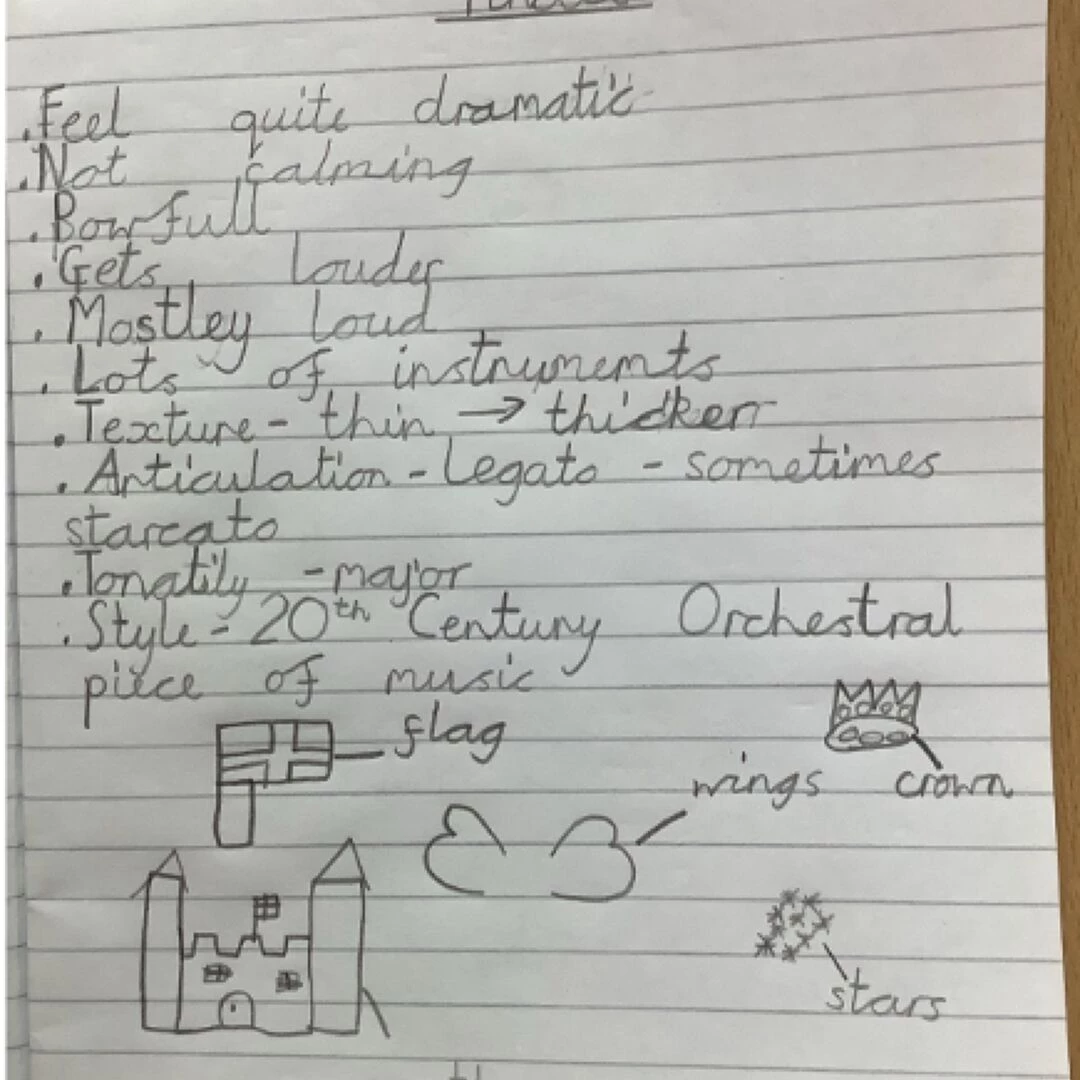 .Feel quite dramatic
.Not calming
.Bowfull
.Gets louder
.Mostley loud
.Lots of instruments
.Texture - thin → thicker
.Articulation - Legato - sometimes
starcato
.Tonatily - major
.Style - 20th Century Orchestral
piece of music
flag
wings crown
stars